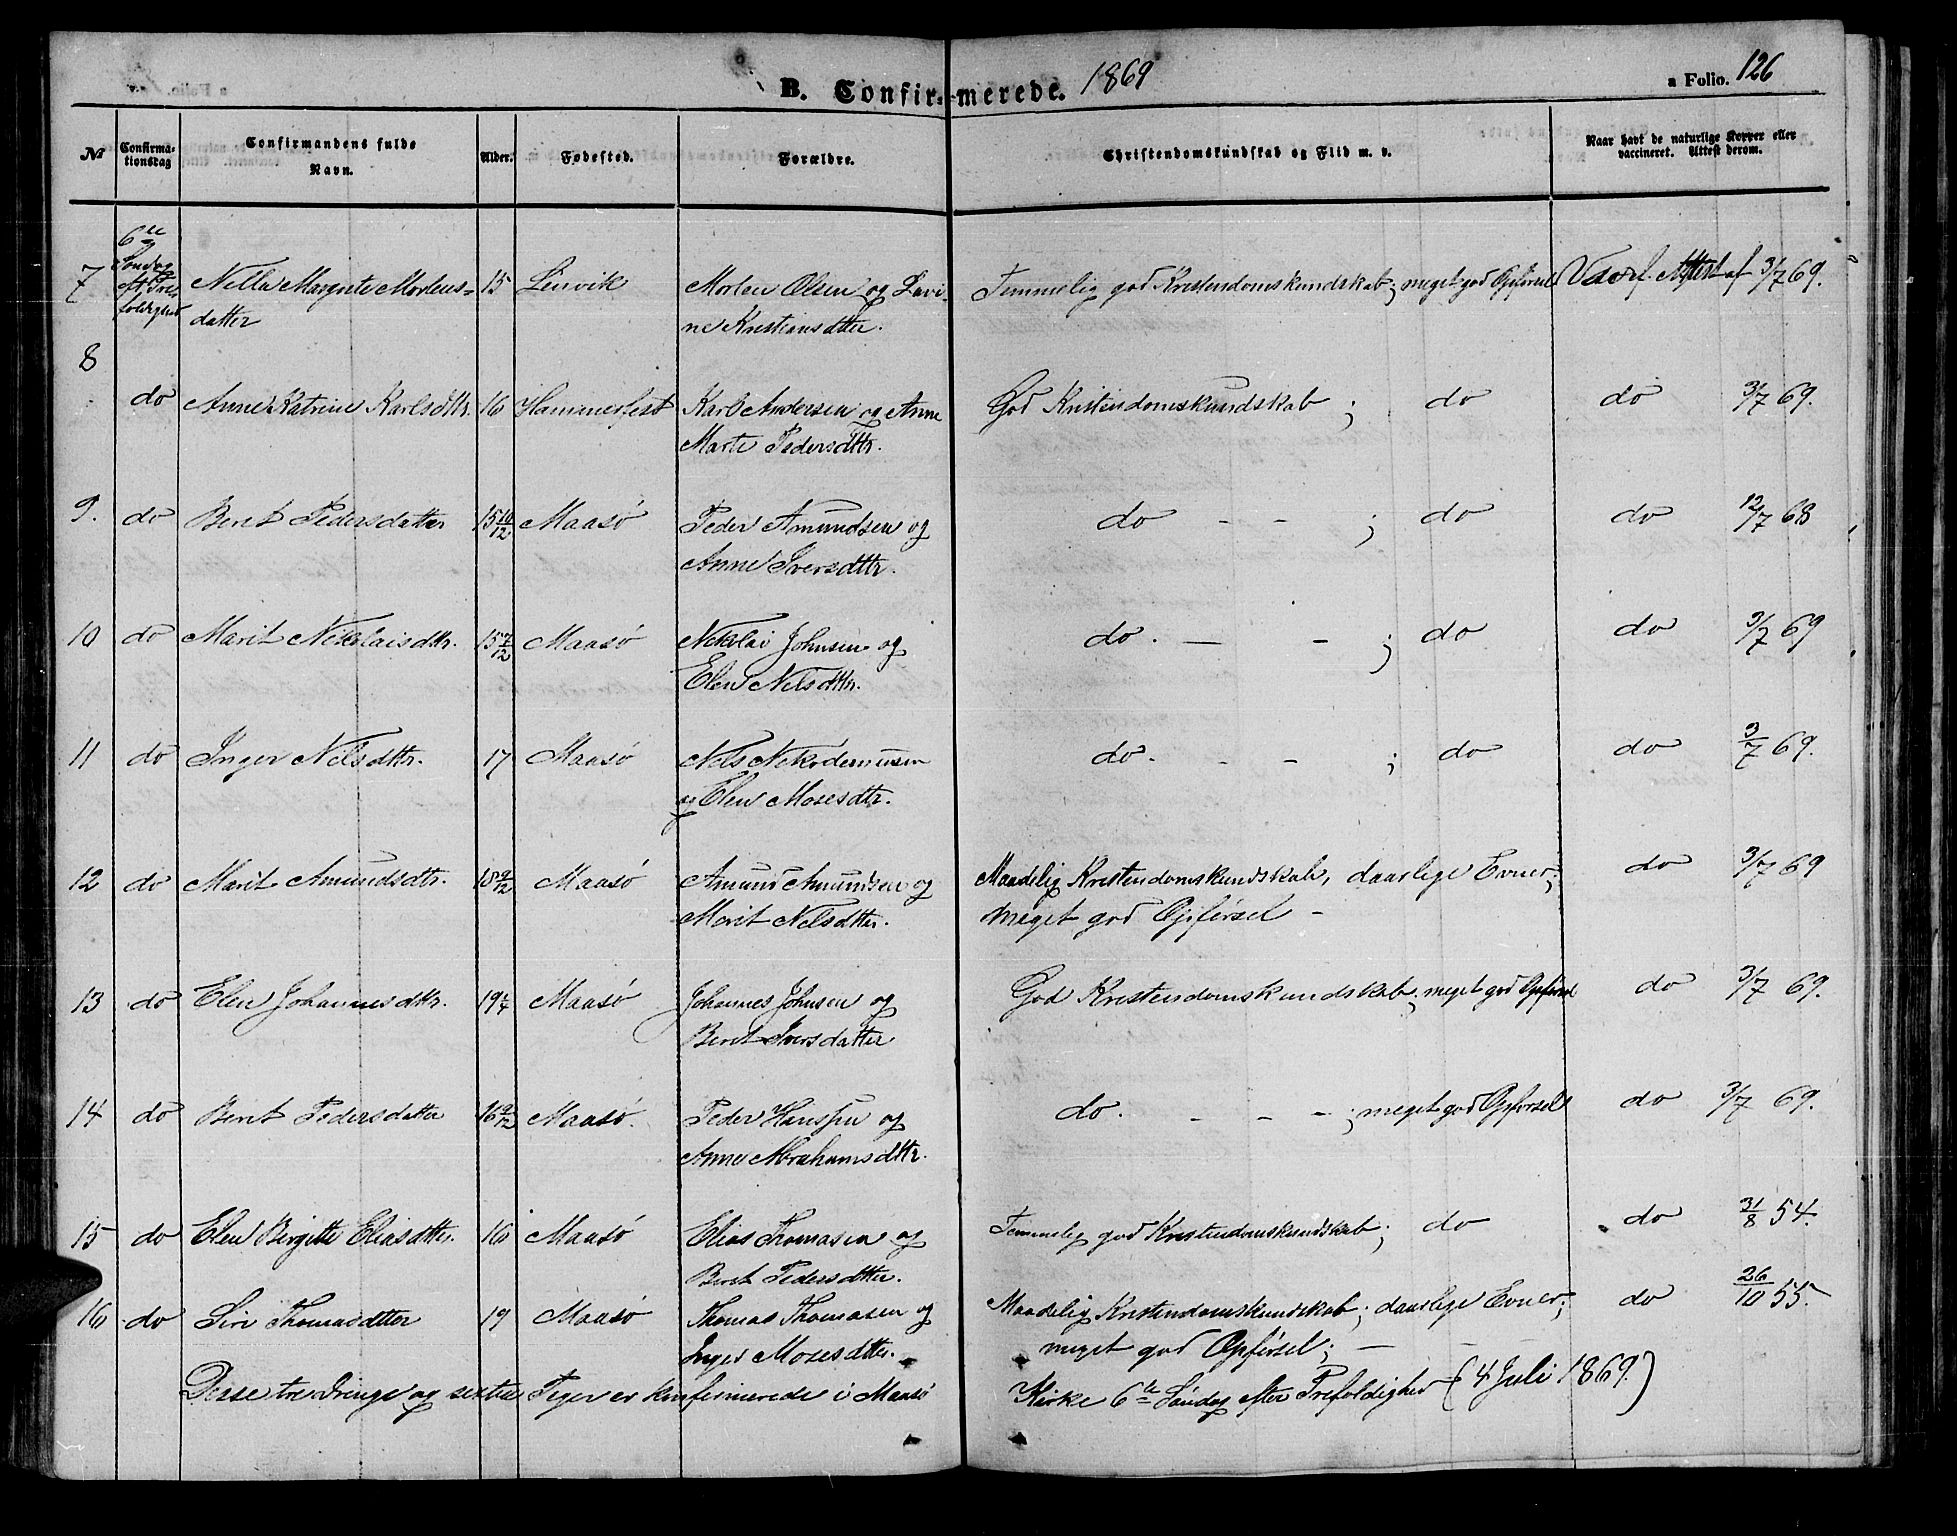 B. Confirmerede. 1869
a Folio. 126
№ Confirmationsdag Confirmandens fulde Navn. Alder. Fødested. Forældre. Christendomskundskab og Flid m. v. Naar havt de naturlige Kopper eller vaccineret. Attest derom.
7 6te Søndag eft. Trefoldighed Nella Margrete Mortens- 15 Lenvik Morten Olsen og Lavi- Temmelig god Kristendomskundskab; meget god Opførsel Vacc. Attest af 3/7 69.
datter ne Kristiansdtter.
8 do Anne Katrine Karlsdttr. 16 Hammerfest Karl Andersen og Anne God Kristendomskundskab ; do do 3/7 69.
Marte Pedersdttr.
9. do Berit Pedersdatter 15 10/12 Maasø Peder Amundsen og do - - ; do do 12/7 68
Anne Iversdttr.
10 do Marit Nikolaisdttr. 15 7/12 Maasø Nikolai Johnsen og do. - - ; do do 3/7 69
Elen Nilsdttr.
11 do Inger Nilsdttr. 17 Maasø Nils Nikodemusen do. - - ; do do 3/7 69.
og Elen Mosesdttr.
12 do Marit Amundsdttr. 18 9/12 Maasø Amund Amundsen og Maadelig Kristendomskundskab, daarlige Evner; do 3/7 69
Marit Nilsdttr. meget god Opførsel -
13 do Elen Johannesdttr. 19 1/4 Maasø Johannes Johnsen og God Kristendomskundskab; meget god Opførsel do 3/7 69.
Berit Iversdatter
14 do Berit Pedersdatter 16 9/12 Maasø. Peder Hanssen og do. - - - ; meget god Opførsel do 3/7 69.
Anne Abrahamsdttr.
15 do Elen Birgitte Eliasdtter. 16 Maasø Elias Thomasen og Temmelig god Kristendomskundskab; do do 31/8 54.
Berit Pedersdtter.
16 do Siri Thomasdtter 19 Maasø Thomas Thomasen og Maadelig Kristendomskundskab; daarlige Evner; do 26/10 55.
Inger Mosesdtter. meget god Opførsel; -
Disse tre Drenge og sexten Piger er konfirmerede i Maasø Kirke 6te Søndag efter Trefoldighed (4 Juli 1869.)